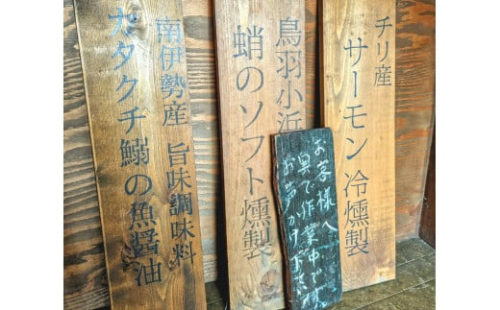 チリ産
サーモン冷燻製
鳥羽小浜
蛸のソフト燻製
南伊勢産 旨味調味料
カタクチ鰯の魚醤油
お客様へ
奥で作業中です
お声がけ下さい